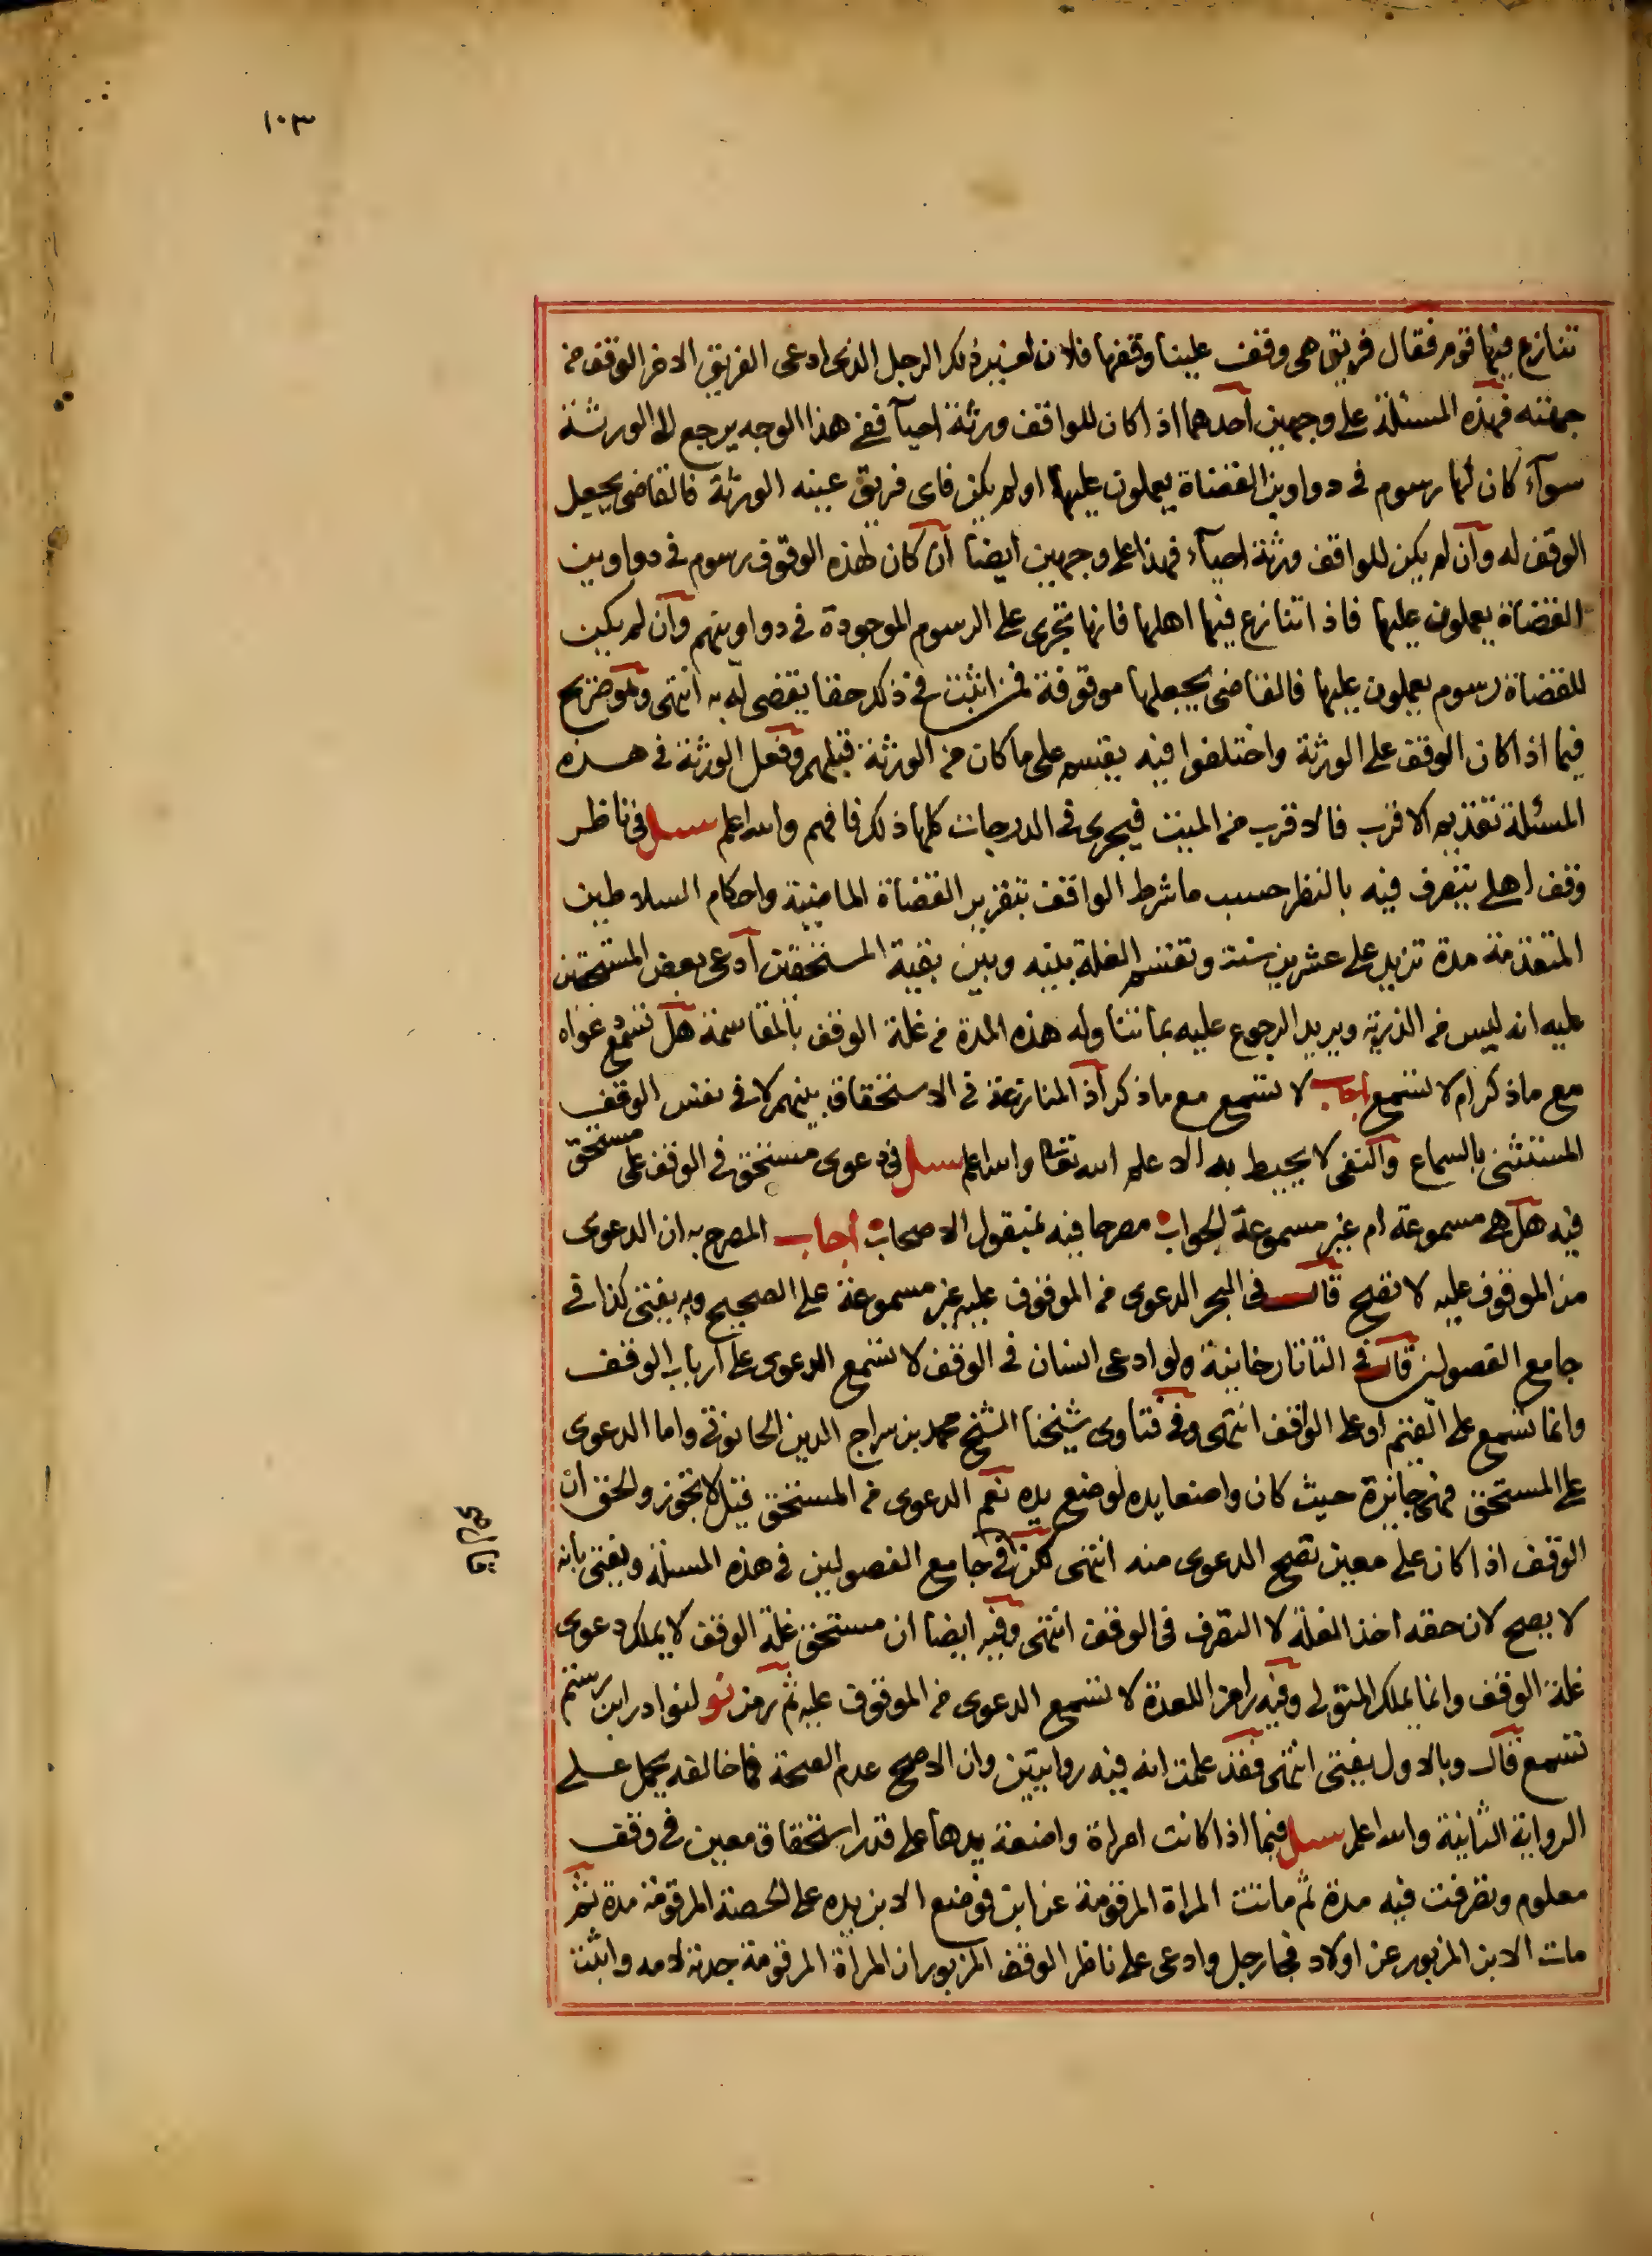 ١٠٣
تنازع فيها قوم فقال فريق هى وقف علينا وقفها فلان لغير ذلك الرجل الذى ادعى الفريق الاخر الوقف من
جهته فهذه المسئلة على وجهين احدهما اذا كان للواقف ورثة احيآ ففى هذا الوجه يرجع الى الورثة
سوآء كان لها رسوم فى دواوين القضاة يعملون عليها او لم يكن فاى فريق عينه الورثة فالقاضى يجعل
الوقف له وان لم يكن للواقف ورثة احيآء فهذا على وجهين ايضا ان كان لهذه الوقوف رسوم فى دواوين
القضاة يعملون عليها فاذا تنازع فيها اهلها فانها تجرى على الرسوم الموجودة فى دواوينهم وان لم يكن
للقضاة رسوم يعملون عليها فالقاضى يجعلها موقوفة فمن اثبت فى ذلك حقا يقضى له به انتهى وهو صريح
فيما اذا كان الوقف على الورثة واختلفوا فيه يقسم على ما كان من الورثة قبلهم وفعل الورثة فى هذه
المسئلة تقديم الاقرب فالاقرب من الميت فيجرى فى الدرجات كلها ذلك فافهم والله اعلم سئل فى ناظر
وقف اهلى يتصرف فيه بالنظر حسب ما شرط الواقف بتقرير القضاة الماضية واحكام السلاطين
المتقدمة مدة تزيد على عشرين سنة وتقسم الغلة بينه وبين بقية المستحقين ادعى بعض المستحقين
عليه انه ليس من الذرية ويريد الرجوع عليه بما تناوله هذه المدة من غلة الوقف بالمقاسمة هل تسمع دعواه
مع ما ذكر ام لا تسمع اجاب لا تسمع مع ما ذكر اذ المنازعة فى الاستحقاق بينهم لا فى نفس الوقف
المستثنى بالسماع والنفى لا يحيط به الا علم الله تعالى والله اعلم سئل فى دعوى مستحق فى الوقف على مستحق
فيه هل هى مسموعة ام غير مسموعة الجواب مصرحا فيه بمنقول الاصحاب اجاب المصرح به ان الدعوى
من الموقوف عليه لا تصح قال فى البحر الدعوى من الموقوف عليه غير مسموعة على الصحيح وبه يفتى كذا فى
جامع الفصولين قال فى التاتارخانية ولو ادعى انسان فى الوقف لا تسمع الدعوى على ارباب الوقف
وانما تسمع على القيم او على الواقف انتهى وفى فتاوى شيخنا الشيخ محمد بن سراج الدين الحانوتى واما الدعوى
على المستحق فهى جائزة حيث كان واضعا يده لوضع يده نعم الدعوى من المستحق قيل لا تجوز والحق ان
الوقف اذا كان على معين تصح الدعوى منه انتهى لكن فى جامع الفصولين فى هذه المسئلة ويفتى بانه
لا يصح لان حقه اخذ الغلة لا التصرف فى الوقف انتهى وفيه ايضا ان مستحق غلة الوقف لا يملك دعوى
غلة الوقف وانما يملك المتولى وفيه رامزا للعدة لا تسمع الدعوى من الموقوف عليه ثم رمز نو لنوادر ابن رستم
تسمع قال وبالاول يفتى انتهى فقد علمت انه فيه روايتين وان الاصح عدم الصحة فما خالفه يحمل على
الرواية الثانية والله اعلم سئل فيما اذا كانت امراة واضعة يدها على قدر استحقاق معين فى وقف
معلوم وتصرفت فيه مدة ثم ماتت المراة المرقومة عن ابن فوضع الابن يده على الحصة المرقومة مدة ثم
مات الابن المزبور عن اولاد فجا رجل وادعى على ناظر الوقف المزبور ان المرأة المرقومة جدته لامه واثبت